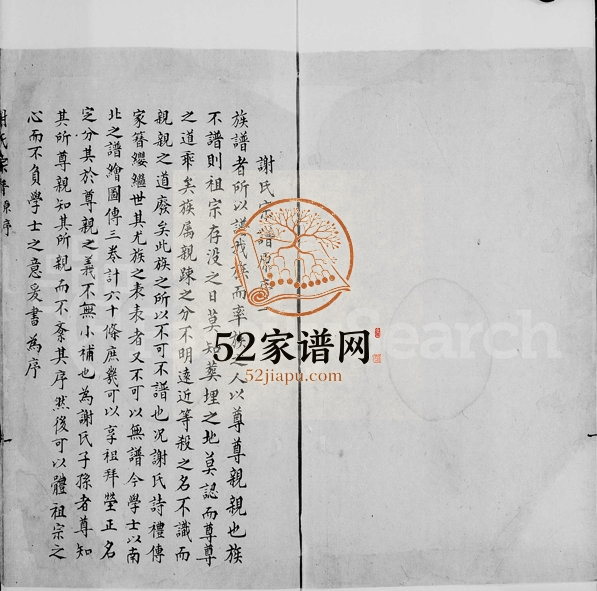 謝氏宗譜原序
族譜者所以譜我族而率族之人以尊尊親親也族
不譜則祖宗存没之日莫知葬埋之地莫認而尊尊
之道乖矣族属親踈之分不明遠近等殺之名不識而
親親之道廢矣此族之所以不可不譜也况謝氏詩禮傳
家簪纓繼世其尤族之表表者又不可以無譜今學士以南
北之譜繪圖傳三卷計六十條庶幾可以享祖拜塋正名
定分其於尊親之義不無小補也為謝氏子孫者尊知
其所尊親知其所親而不紊其序然後可以體祖宗之
心而不負學士之意爰書為序
謝氏宗譜原序
52家谱网
52jiapu.com
Search